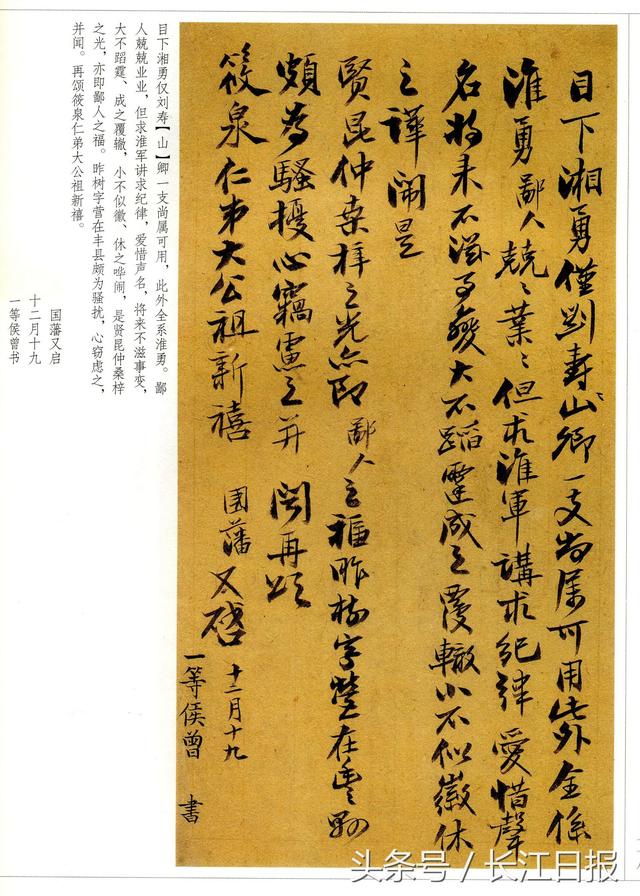 目下湘勇僅劉壽山卿一支尚属可用此外全係
淮勇鄙人兢〻業〻但求淮軍講求紀律愛惜聲
名将来不滋事變大不蹈霆成之覆轍小不似徽休
之譁鬧是
賢昆仲桑梓之光亦即鄙人之福昨樹字營在豊縣
頗为騷擾心竊慮之并聞再頌
筱泉仁弟大公祖新禧
国藩又啓
十二月十九
一等侯曾書
目下湘勇仅刘寿【山】卿一支尚属可用，此外全系淮勇。鄙
人兢兢业业，但求淮军讲求纪律，爱惜声名，将来不滋事变，
大不蹈霆、成之覆辙，小不似徽、休之哗闹，是贤昆仲桑梓
之光，亦即鄙人之福。昨树字营在丰县颇为骚扰，心窃虑之，
并闻。再颂筱泉仁弟大公祖新禧。
国藩又启
十二月十九
一等侯曾书
头条号／长江日报